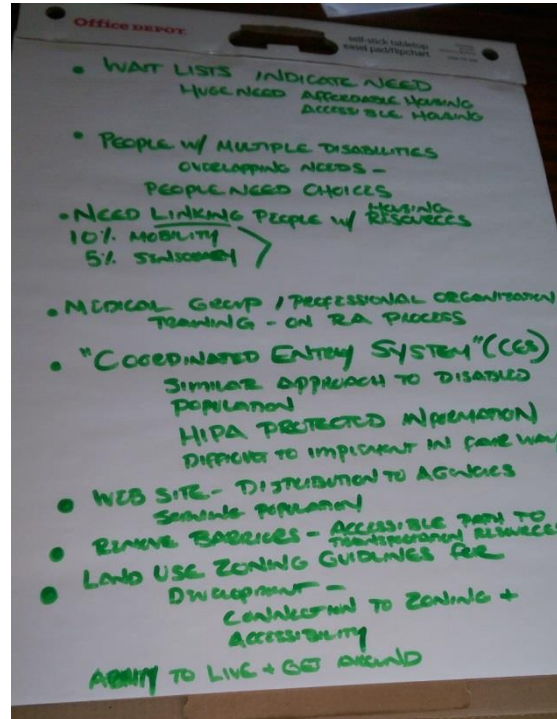 Office DEPOT
self-stick tabletop
easel pad/flipchart
• WAIT LISTS INDICATE NEED
HUGE NEED AFFORDABLE HOUSING
ACCESSIBLE HOUSING
• PEOPLE W/ MULTIPLE DISABILITIES
OVERLAPPING NEEDS –
PEOPLE NEED CHOICES
• NEED LINKING PEOPLE W/ HOUSING RESOURCES
10% MOBILITY
5% SENSORY
• MEDICAL GROUP / PROFESSIONAL ORGANIZATION
TRAINING - ON RA PROCESS
• "COORDINATED ENTRY SYSTEM" (CES)
SIMILAR APPROACH TO DISABLED
POPULATION
HIPA PROTECTED INFORMATION
DIFFICULT TO IMPLEMENT IN SAME WAY
• WEB SITE - DISTRIBUTION TO AGENCIES
SERVING POPULATION
• REMOVE BARRIERS - ACCESSIBLE PATH TO
TRANSPORTATION RESOURCES
• LAND USE ZONING GUIDLINES FOR
DEVELOPMENT –
CONNECTION TO ZONING +
ACCESSIBILITY
ABILITY TO LIVE + GET AROUND